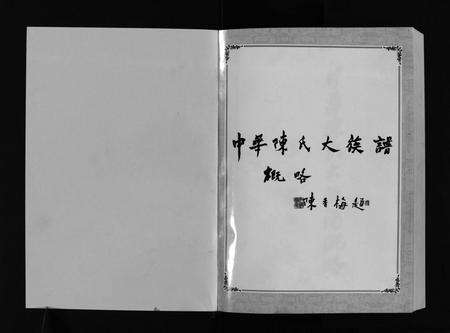 中华陳氏大族譜
概略
陳香梅題